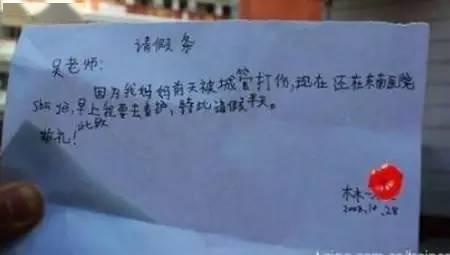 请假条
吴老师:
因为我妈妈前天被城管打伤,现在还在东南医院
,早上我要去看护,特此请假半天。
此致
敬礼!
林
28